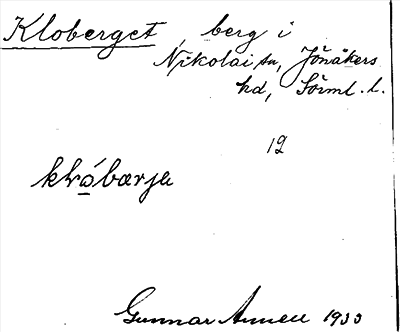 Kloberget, berg i
Nikolai sn, Jönåkers
hd, Sörml. l.
12
klóbærje
Gunnar Annell 1933